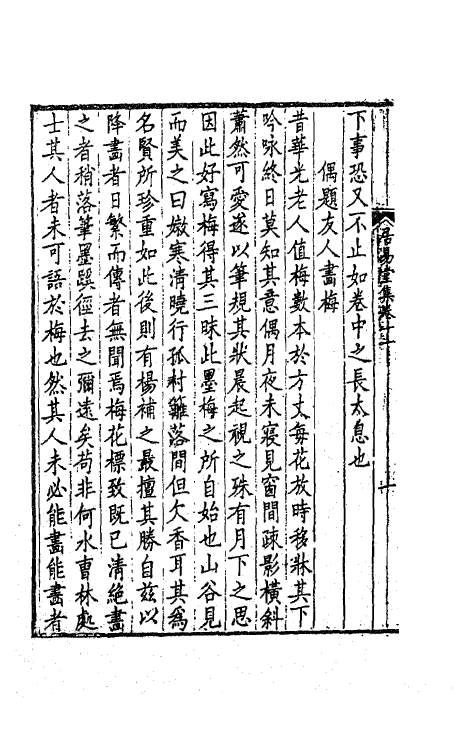 下事恐又不止如卷中之長太息也
偶題友人畫梅
昔華光老人值梅數本於方丈每花放時移牀其下
吟咏終日莫知其意偶月夜未寢見窗間疎影橫斜
蕭然可愛遂以筆規其狀晨起視之殊有月下之思
因此好寫梅得其三昧此墨梅之所自始也山谷見
而美之曰嫩寒清曉行孤村籬落間但欠香耳其爲
名賢所珍重如此後則有楊補之最擅其勝自茲以
降畫者日繁而傳者無聞焉梅花標致既已清絶畫
之者稍落筆墨蹊徑去之彌遠矣苟非何水曹林處
士其人者未可語於梅也然其人未必能畫能畫者